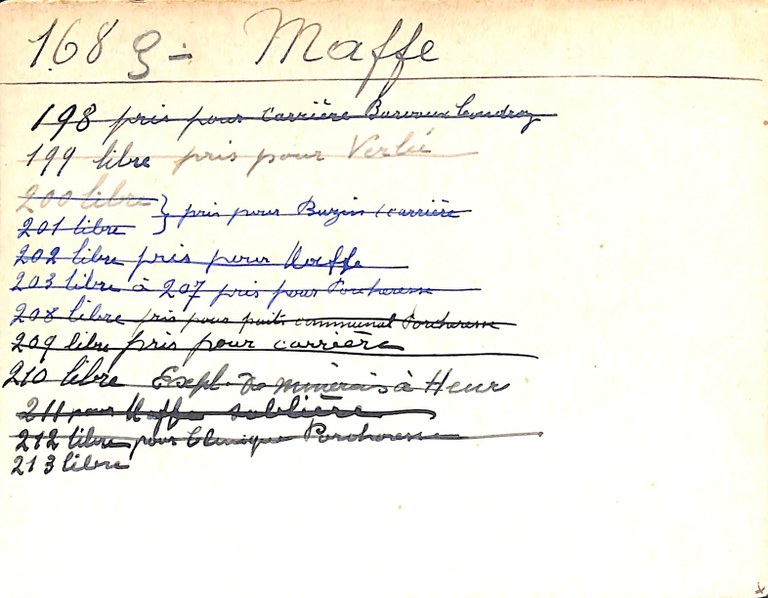 168 E - Maffe
198 pris pour carrière Barvaux Condroz
199 libre pris pour Verlée
200 libre
201 libre } pris pour Buzin (carrière
202 libre pris pour Maffe
203 libre à 207 pris pour Porcheresse
208 libre pris pour puits communal Porcheresse
209 libre pris pour carrière
210 libre Expl. de minerais à Heur
211 pour Maffe sablière
212 libre pour Clinique Porcheresse
213 libre